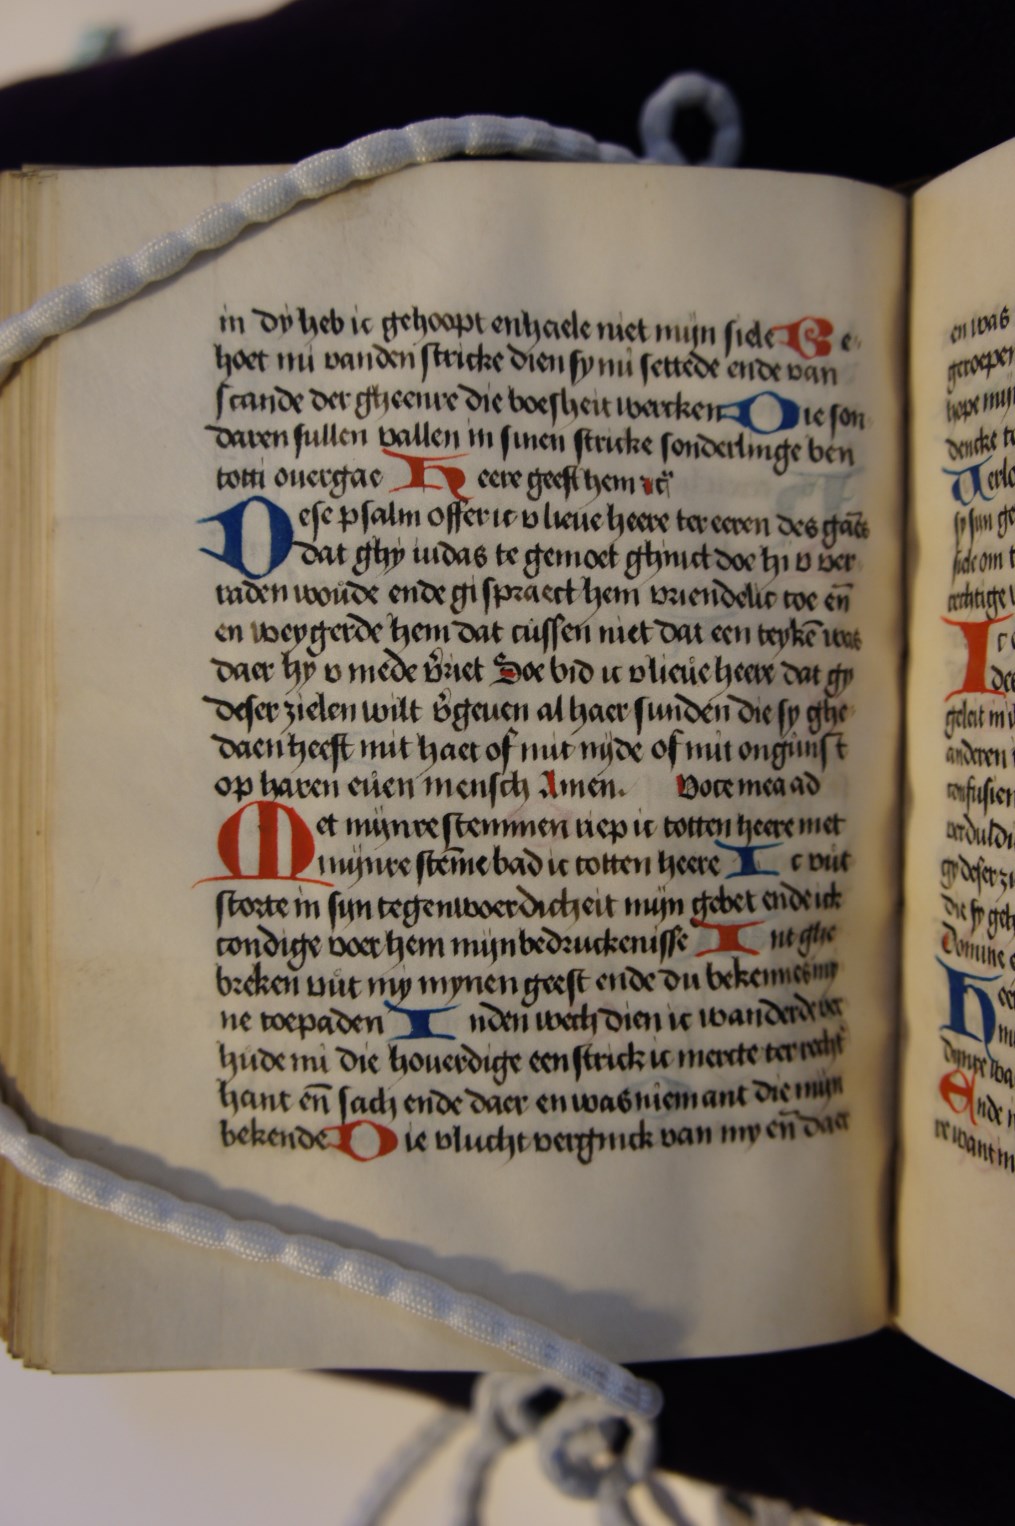 in dy heb ic gehoopt en haele niet mijn siele Be
hoet mi vanden stricke dien sy mi settede ende van
scande der gheenre die boesheit wercken Die son
daren sullen vallen in sinen stricke sonderlinge ben
totti ouergae Heere geeft hem
Dese psalm offer ic v lieue heere ter eeren des
dat ghy iudas te gemoet ghinct doe hi v ver
raden woude ende gi spraect hem vriendelic toe en̄
en weygerde hem dat cussen niet dat een teykē was
daer hy v mede v̄riet Soe bid ic v lieue heere dat gy
deser zielen wilt v̄geuen al haer sunden die sy ghe
daen heeft mit haet of mit nyde of mit ongunst
op haren euen mensch Amen. Voce mea ad
Met mijnre stemmen riep ic totten heere met
mijnre stēme bad ic totten heere Ic wut
storte in syn tegenwoerdicheit mijn gebet ende ick
condige voer hem mijn bedruckenisse Int ghe
breken wut my mynen geest ende du bekennes my
ne toepaden Inden wech dien ic wanderde ver
hude mi die houerdige een strick ic mercte ter recht
hant en̄ sach ende daer en was niemant die mijn
bekende Die vlucht verginck van my en̄ daer
en was
geroepen
hope mijn
sy sijn ge
side om
I
geleit in
anderen
gy deser zi
die sy geh
Domine